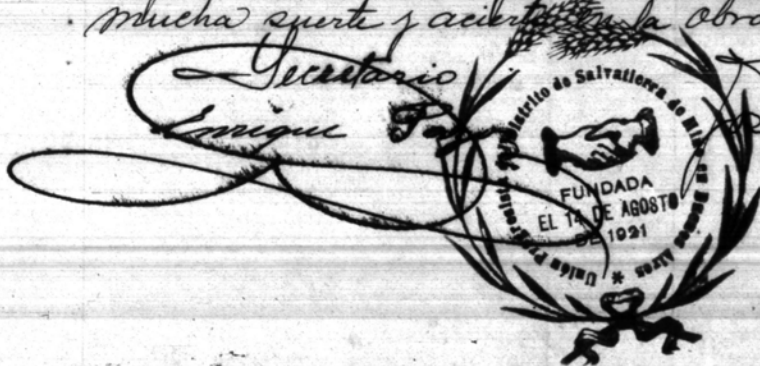 mucha suerte y acierto en la obra
Secretario
Enrique
Unión Progresista del Distrito de Salvatierra de Miño en Buenos Aires *
FUNDADA
EL 14 DE AGOSTO
DE 1921